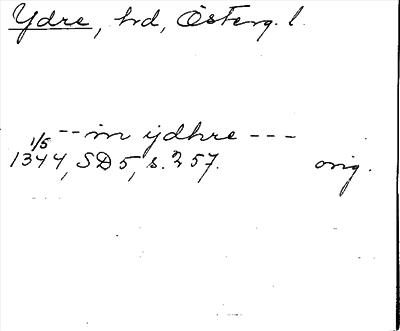 Ydre, hd, Österg. l.
-- in ydhre ---
1/5
1344, SD 5, s. 257. orig.